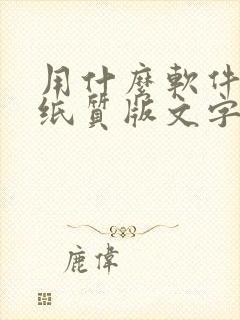 用什麼軟件
纸質版文字
鹿偉